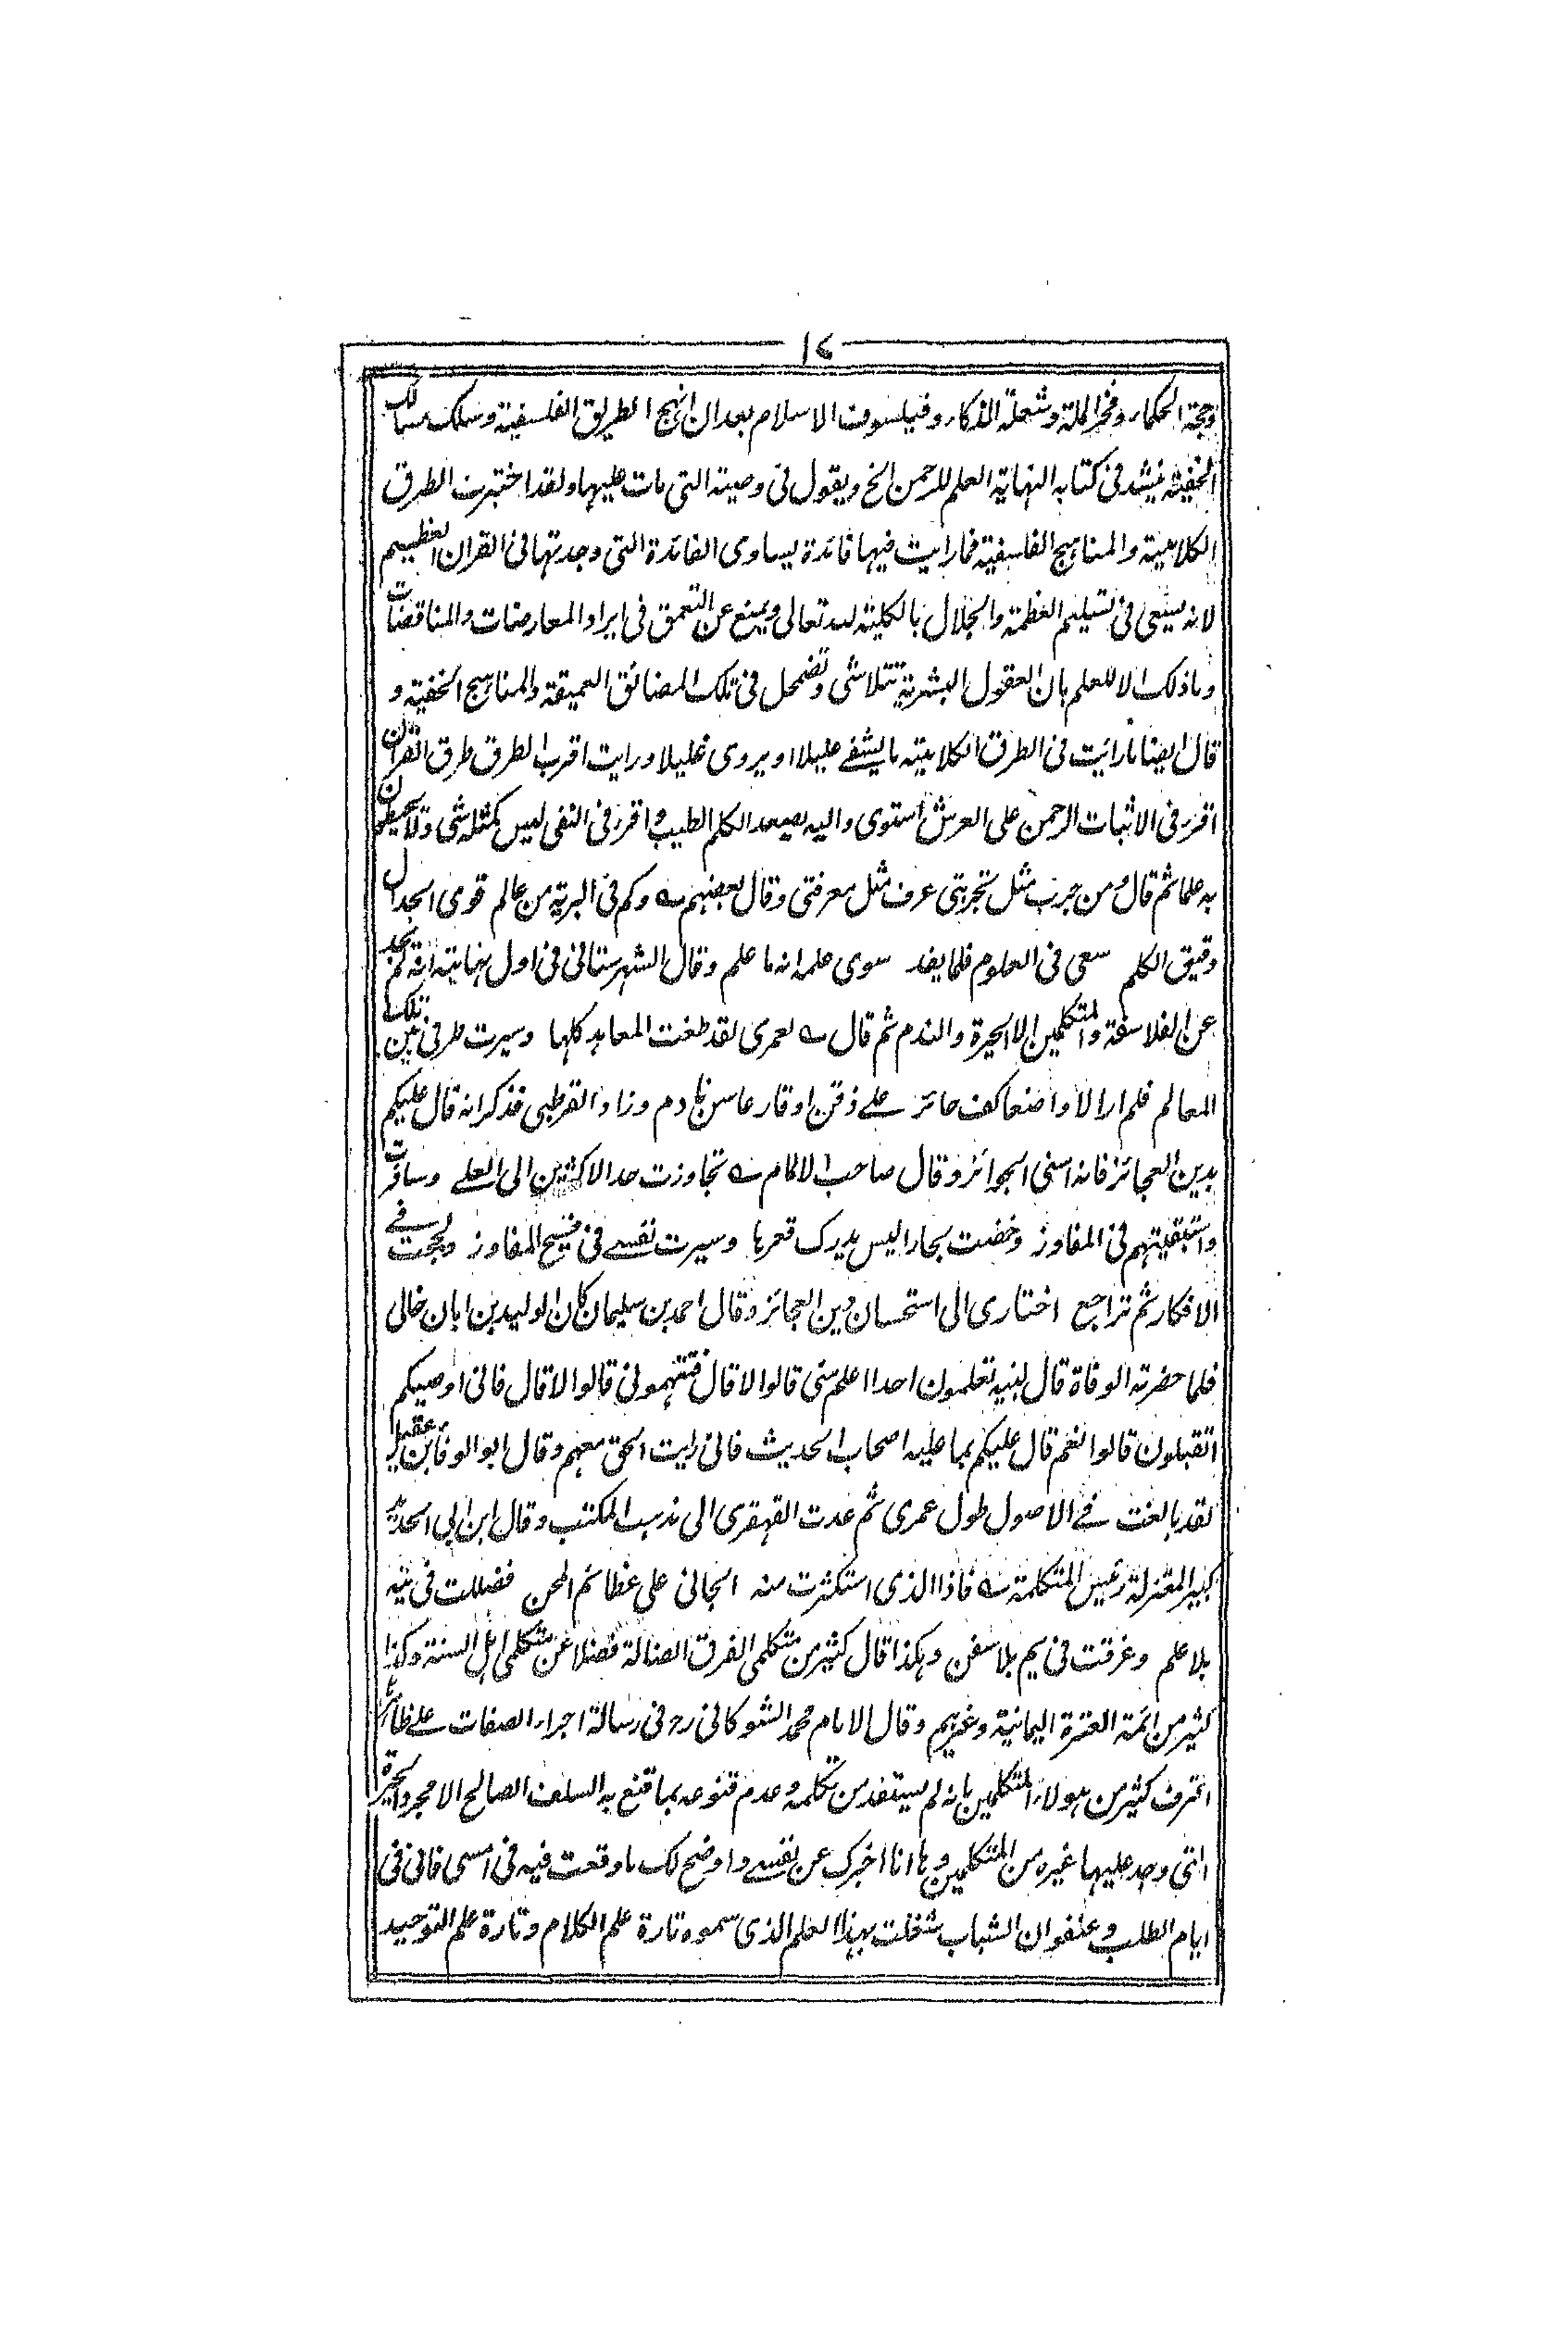 ١٤
وحجة الحكماء وفخر الملة وشعلة الذكاء وفيلسوف الاسلام بعد ان انهج الطريق الفلسفية وسلك مسالك
الخفية فينشد فى كتابه النهاية العلم للرحمن الخ ويقول فى وصيته التى مات عليها ولقد اختبرت الطرق
الكلامية والمناهج الفلسفية فما رايت فيها فائدة يساوى الفائدة التى وجدتها فى القران العظيم
لانه يسعى فى تسليم العظمة والجلال بالكلية لله تعالى ويمنع عن التعمق فى ايراد المعارضات والمناقضات
وما ذلك الا للعلم بان العقول البشرية تتلاشى وتضمحل فى تلك المضائق العميقة والمناهج الخفية و
قال ايضا ما رايت فى الطرق الكلامية ما يشفے عليلا او يروى غليلا ورايت اقرب الطرق طرق القران
اقرء فى الاثبات الرحمن على العرش استوى واليه يصعد الكلم الطيب واقرء فى النفى ليس كمثله شى ولا يحيطون
به علما ثم قال ومن جرب مثل تجربتى عرف مثل معرفتى وقال بعضهم ؎ وكم فى البرية من عالم قوى الجدال
دقيق الكلم سعى فى العلوم فلما يفد سوى علمه انه ما علم وقال الشهرستانى فى اول نهايته انه لم يجد
عن الفلاسفة والمتكلمين الا الحيرة والندم ثم قال ؎ لعمرى لقد طفت المعاهد كلها وسيرت طرفى بين تلك
المعالم فلم ار الا واضعا كف حائر علے ذقن او قارعا سن نادم وزاد القرطبى فذكر انه قال عليكم
بدين العجائز فانه اسنى الجوائز وقال صاحب الالمام ؎ تجاوزت حد الاكثرين الى العلے وسافرت
واستبقيتهم فى المفاوز وخضت بحارا ليس يدرك قعرها وسيرت نفسے فى فسيح المفاوز ولججت فے
الافكار ثم تراجع اختارى الى استحسان دين العجائز وقال احمد بن سليمان كان الوليد بن ابان خالى
فلما حضرته الوفاة قال لبنيه تعلمون احدا اعلم منى قالوا لا قال فتتهمونى قالوا لا قال فانى اوصيكم
اتقبلون قالوا نعم قال عليكم بما عليه اصحاب الحديث فانى رايت الحق معهم وقال ابو الوفا بن عقيل
لقد بالغت فے الاصول طول عمرى ثم عدت القهقرى الى مذهب المكتب وقال ابن ابى الحديد
كبير المعتزلة رئيس المتكلمة ؎ فاذا الذى استكثرت منه الجانى على عظائم المحن فضللت فى تيه
بلا علم وغرقت فى يم بلا سفن وهكذا قال كثير من متكلمى الفرق الضالة فضلا عن متكلمى اهل السنة وكذا
كثير من ائمة العترة اليمانية وغيرهم وقال الامام محمد الشوكانى رح فى رسالة اجراء الصفات علے ظاهرها
اعترف كثير من هولاء المتكلمين بانه لم يستفد من تكلمه وعدم قنوعه بما قنع به السلف الصالح الا مجرد الحيرة
التى وجد عليها غيره من المتكلمين وها انا اخبرك عن نفسے واوضح لك ما وقعت فيه فى امسى فانى فى
ايام الطلب وعنفوان الشباب شغلت بهذا العلم الذى سموه تارة علم الكلام وتارة علم التوحيد